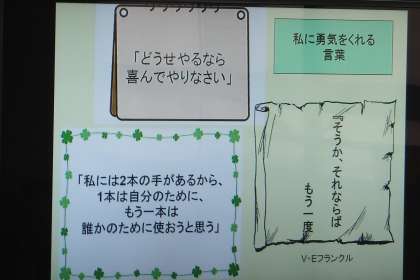 私に勇気をくれる
言葉
「どうせやるなら
喜んでやりなさい」
『そうか、それならば
もう一度
V・Eフランクル
「私には2本の手があるから、
1本は自分のために、
もう一本は
誰かのために使おうと思う」